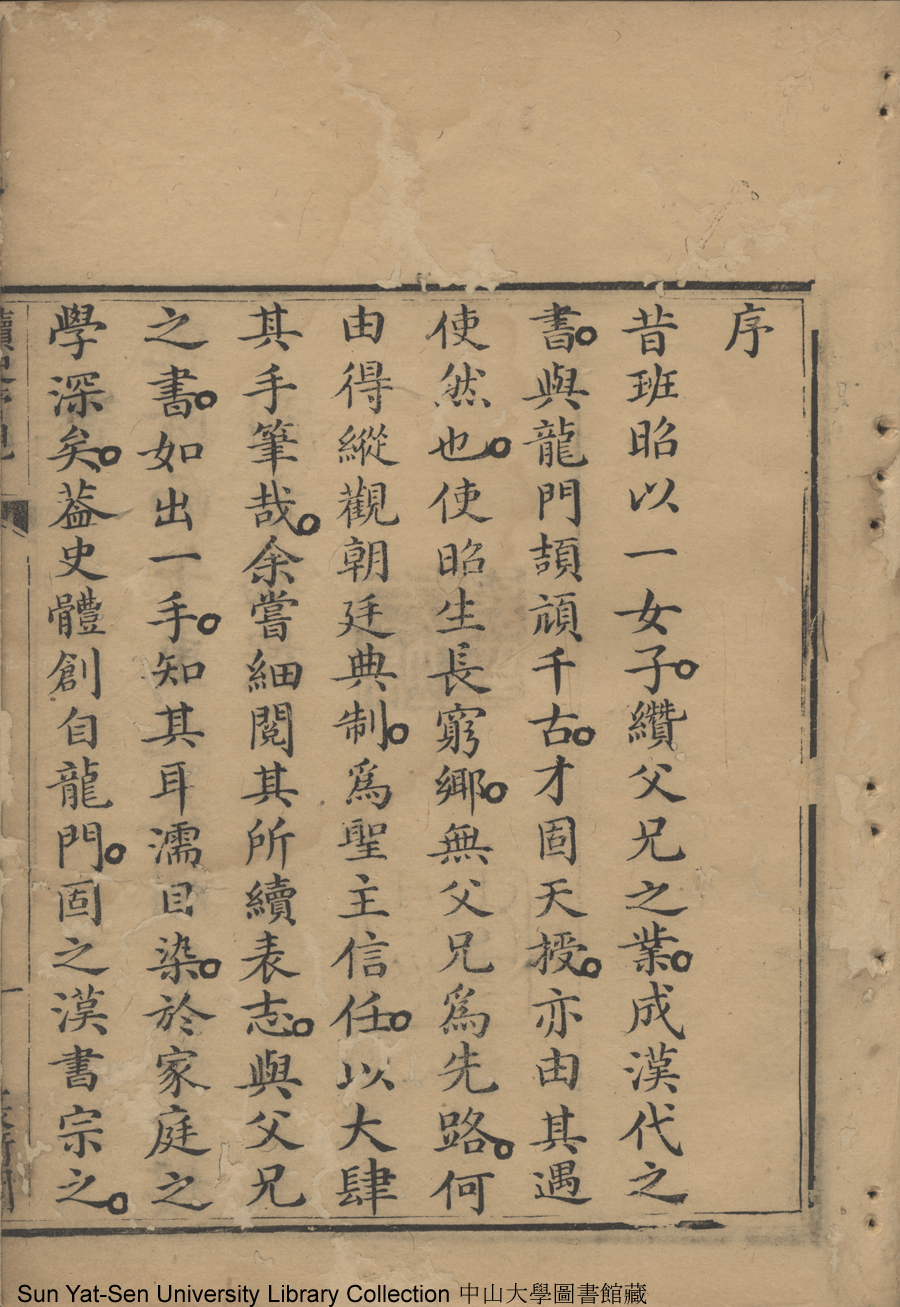 序
昔班昭以一女子。纘父兄之業。成漢代之
書。與龍門頡頏千古。才固天授。亦由其遇
使然也。使昭生長窮鄉。無父兄爲先路。何
由得縱觀朝廷典制。爲聖主信任。以大肆
其手筆哉。余嘗細閱其所續表志。與父兄
之書。如出一手。知其耳濡目染。於家庭之
學深矣。葢史體創自龍門。固之漢書宗之。
一
Sun Yat-Sen University Library Collection 中山大學圖書館藏